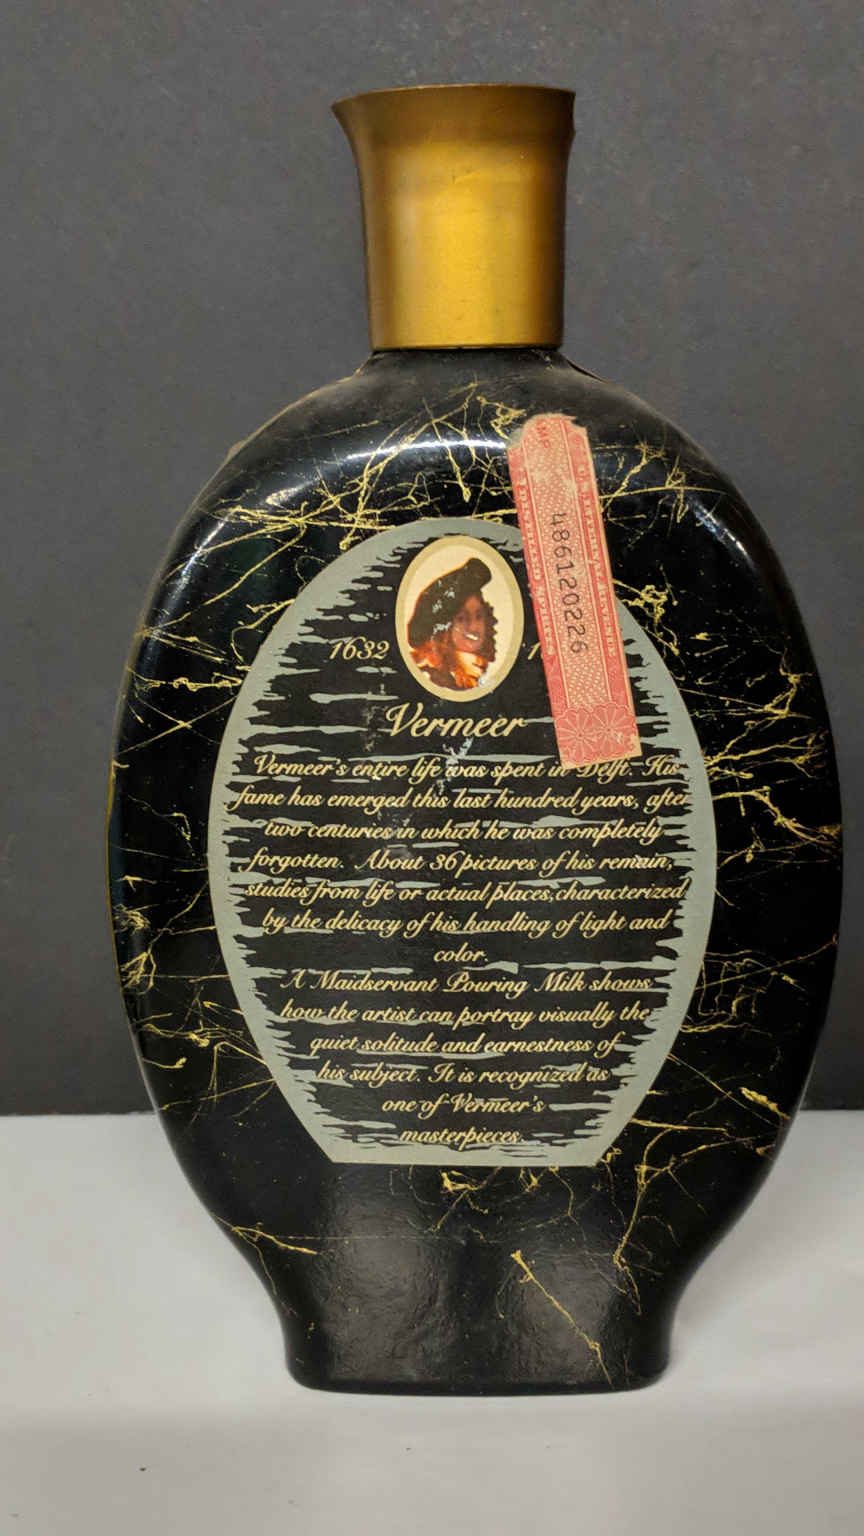 486120226
1632
Vermeer
Vermeer's entire life was spent in Delft. His
fame has emerged this last hundred years, after
two centuries in which he was completely
forgotten. About 36 pictures of his remain,
studies from life or actual places, characterized
by the delicacy of his handling of light and
color.
A Maidservant Pouring Milk shows
how the artist can portray visually the
quiet solitude and earnestness of
his subject. It is recognized as
one of Vermeer's
masterpieces.